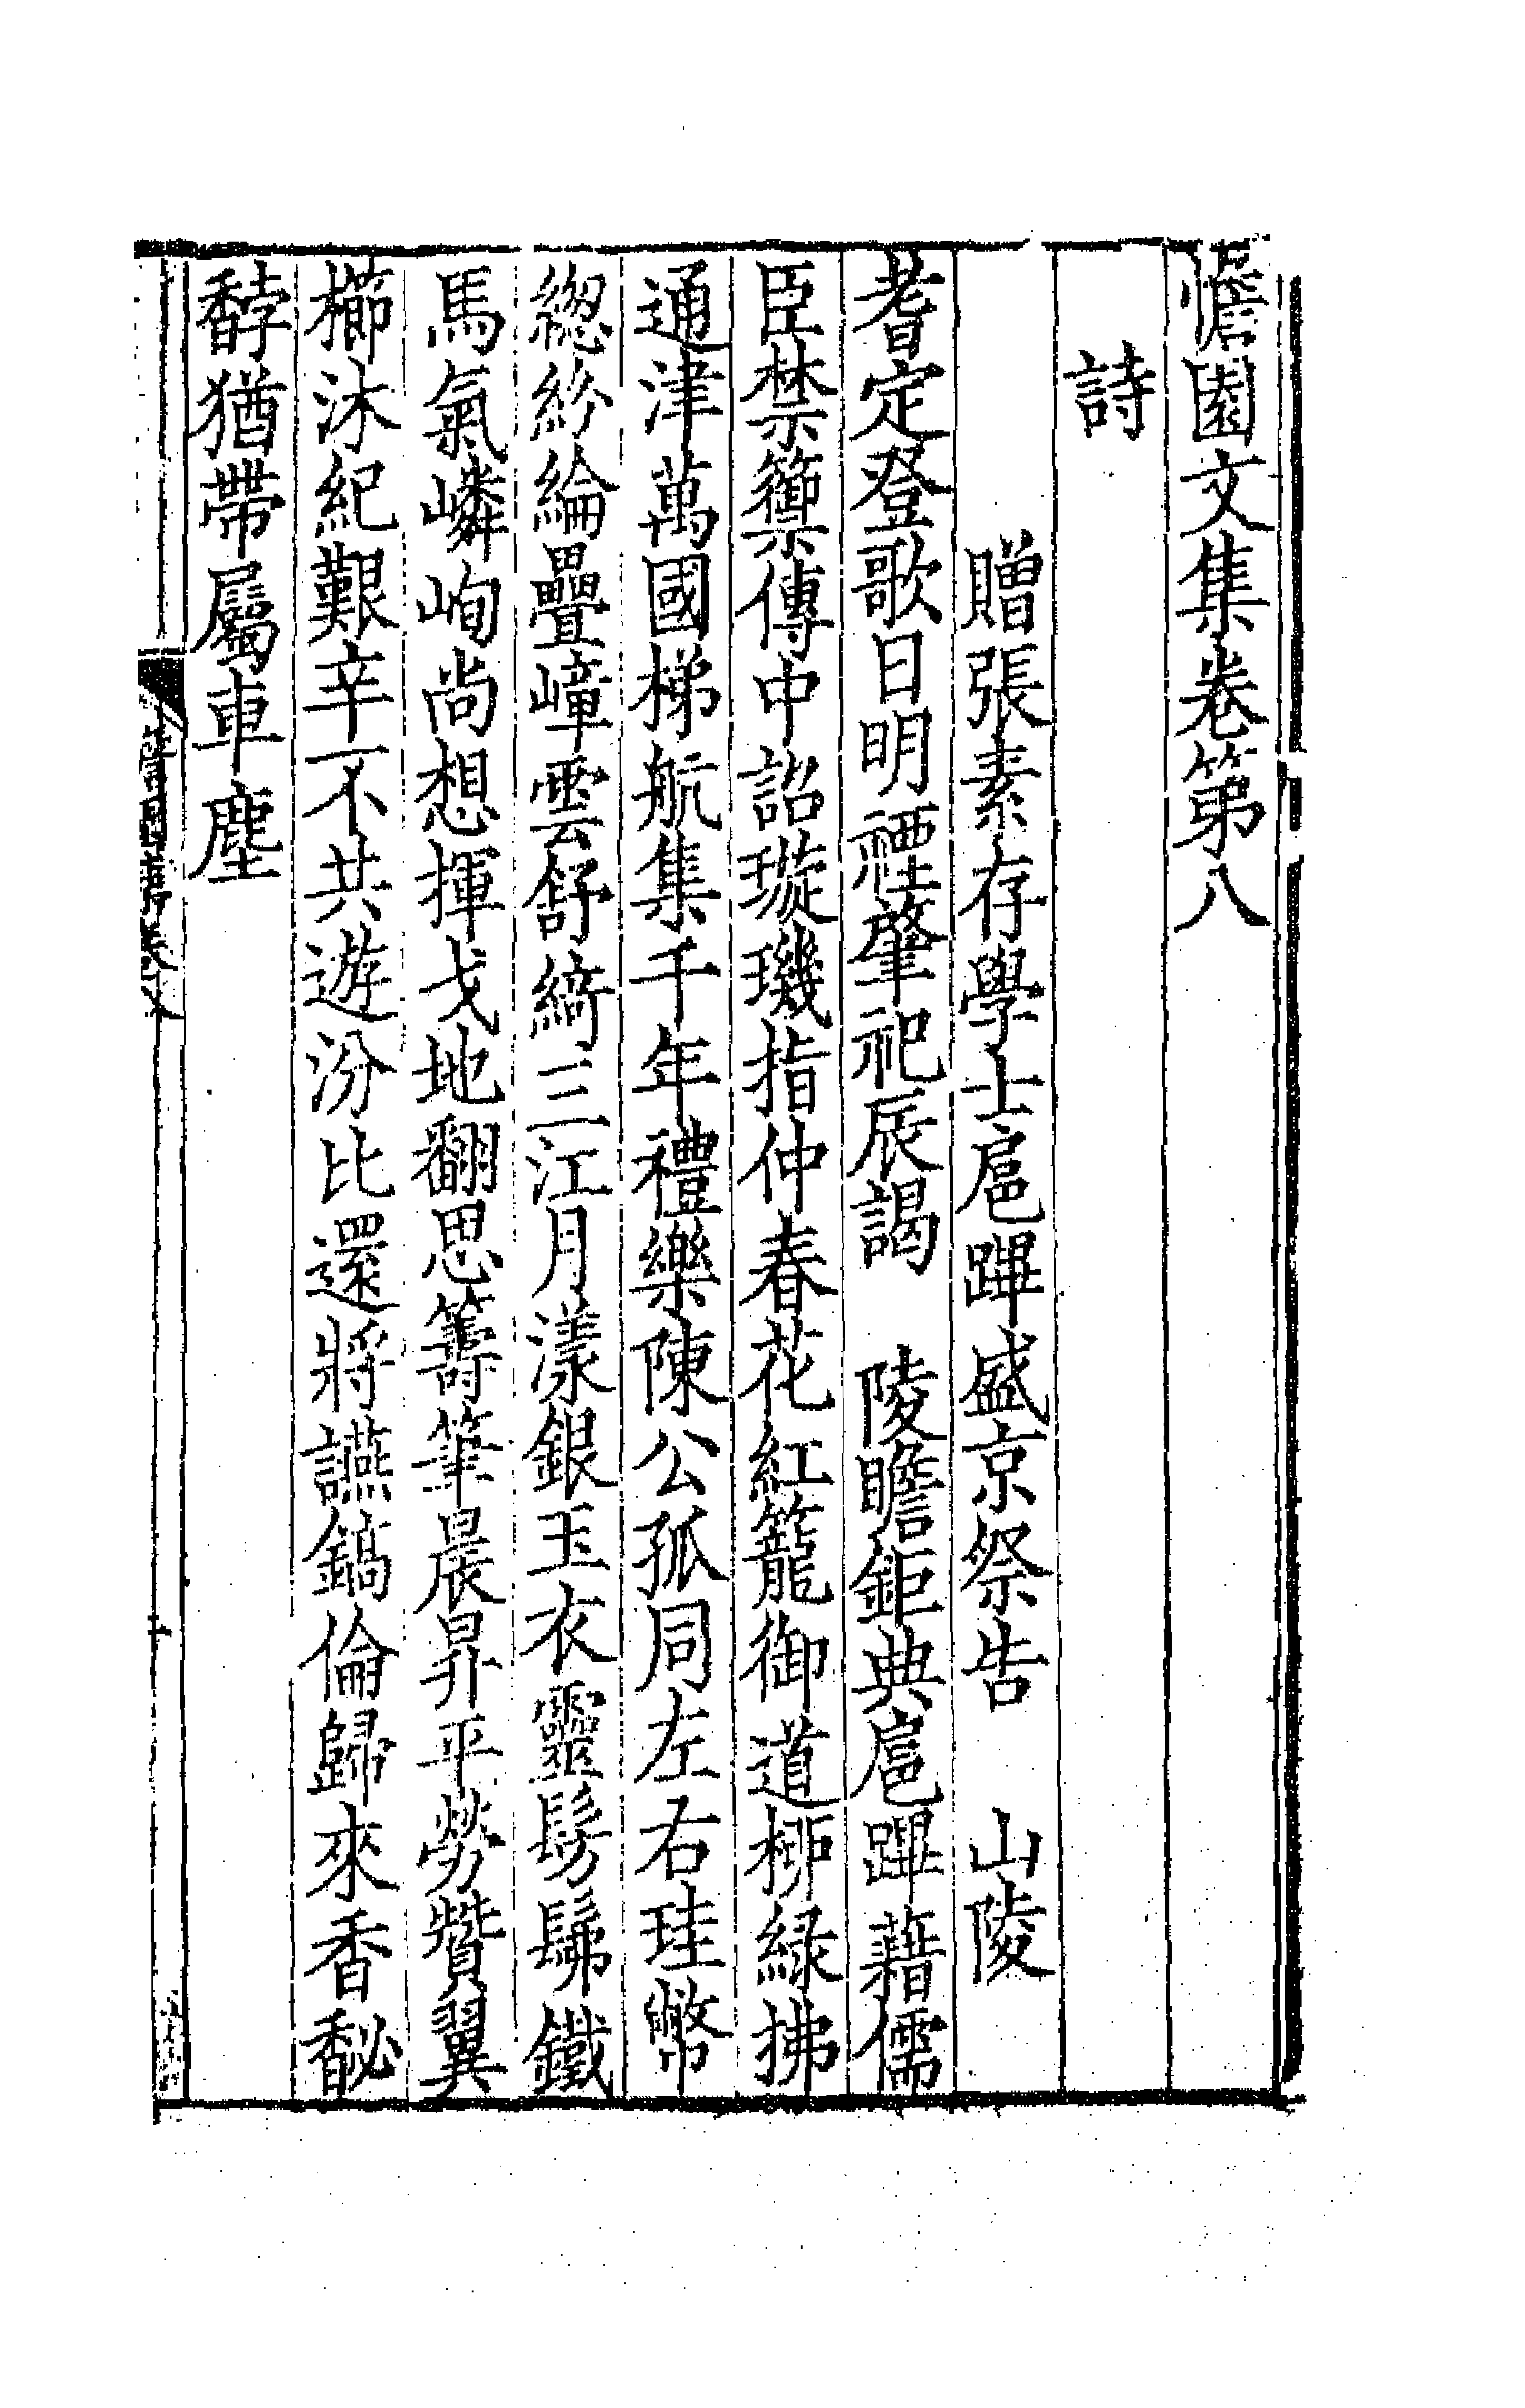 憺園文集卷第八
詩
贈張素存學士扈蹕盛京祭告　山陵
耆定登歌日明禋肇祀辰謁　陵瞻鉅典扈蹕藉儒
臣禁籞傳中詔璇璣指仲春花紅籠御道桺緑拂
通津萬國梯航集千年禮樂陳公孤同左右珪幣
緫紛綸疊嶂雲舒綺三江月漾銀玉衣靈髣髴鐵
馬氣嶙峋尚想揮戈地翻思籌筆晨昇平勞贊翼
櫛沐紀艱辛不共遊汾比還將讌鎬倫歸來香馝
馞猶帶屬車塵